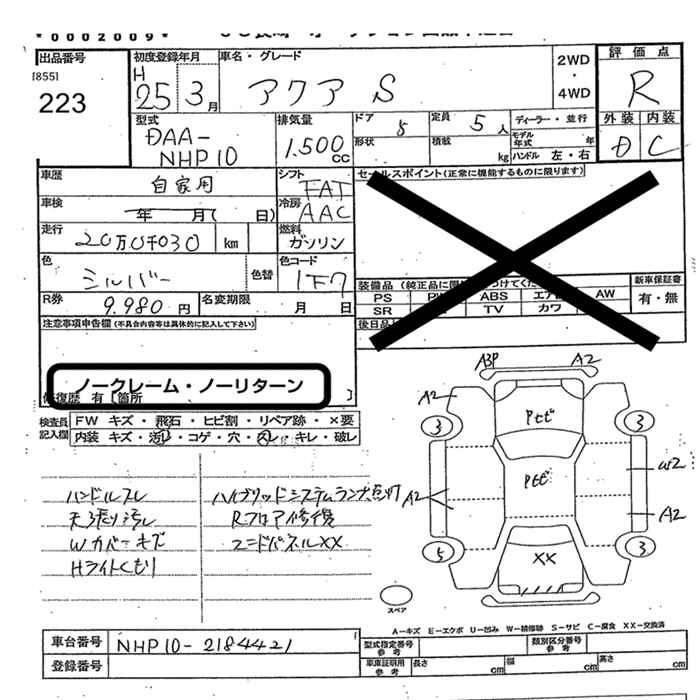 *0002009*
出品番号
[855]
223
初度登録年月
H
25 3月
車名・グレード
アクア S
2WD
・
4WD
評価点
R
外装 内装
D C
型式
DAA-
NHP10
排気量
1.500
CC
ドア
5
定員
5人
形状
積載
kg
ディーラー・並行
モデル
年式
年
ハンドル 左・右
車歴
自家用
シフト
FAT
車検
年 月( 日)
冷房
AAC
走行
20万0千030
km
燃料
ガソリン
色
シルバー
色替
色コード
1F7
R券
9.980 円
名変期限
月 日
セールスポイント(正常に機能するものに限ります)
PS
ABS
AW
SR
TV
カワ
新車保証書
有・無
注意事項申告欄(不具合内容等は具体的に記入して下さい)
ノークレーム・ノーリターン
修復歴 有 [箇所 ]
検査員
記入欄
FW キズ・飛石・ヒビ割・リペア跡・×要
内装 キズ・汚レ・コゲ・穴・スレ・キレ・破レ
ハンドルスレ
天張り汚レ
Wカバーキズ
Hライトくもり
ハイブリッドシステムランプ点灯
Rフロア修復
エンドパネルXX
A3P
A2
A2
3
3
Pセビ
Pセビ
A2
W2
A2
5
3
XX
スペア
A−キズ E−エクボ U−凹み W−補修跡 S−サビ C−腐食 XX−交換済
車台番号
NHP10-2184421
登録番号
型式指定番号
参考
類別区分番号
参考
車庫証明用
参考
長さ
cm
幅
cm
高さ
cm